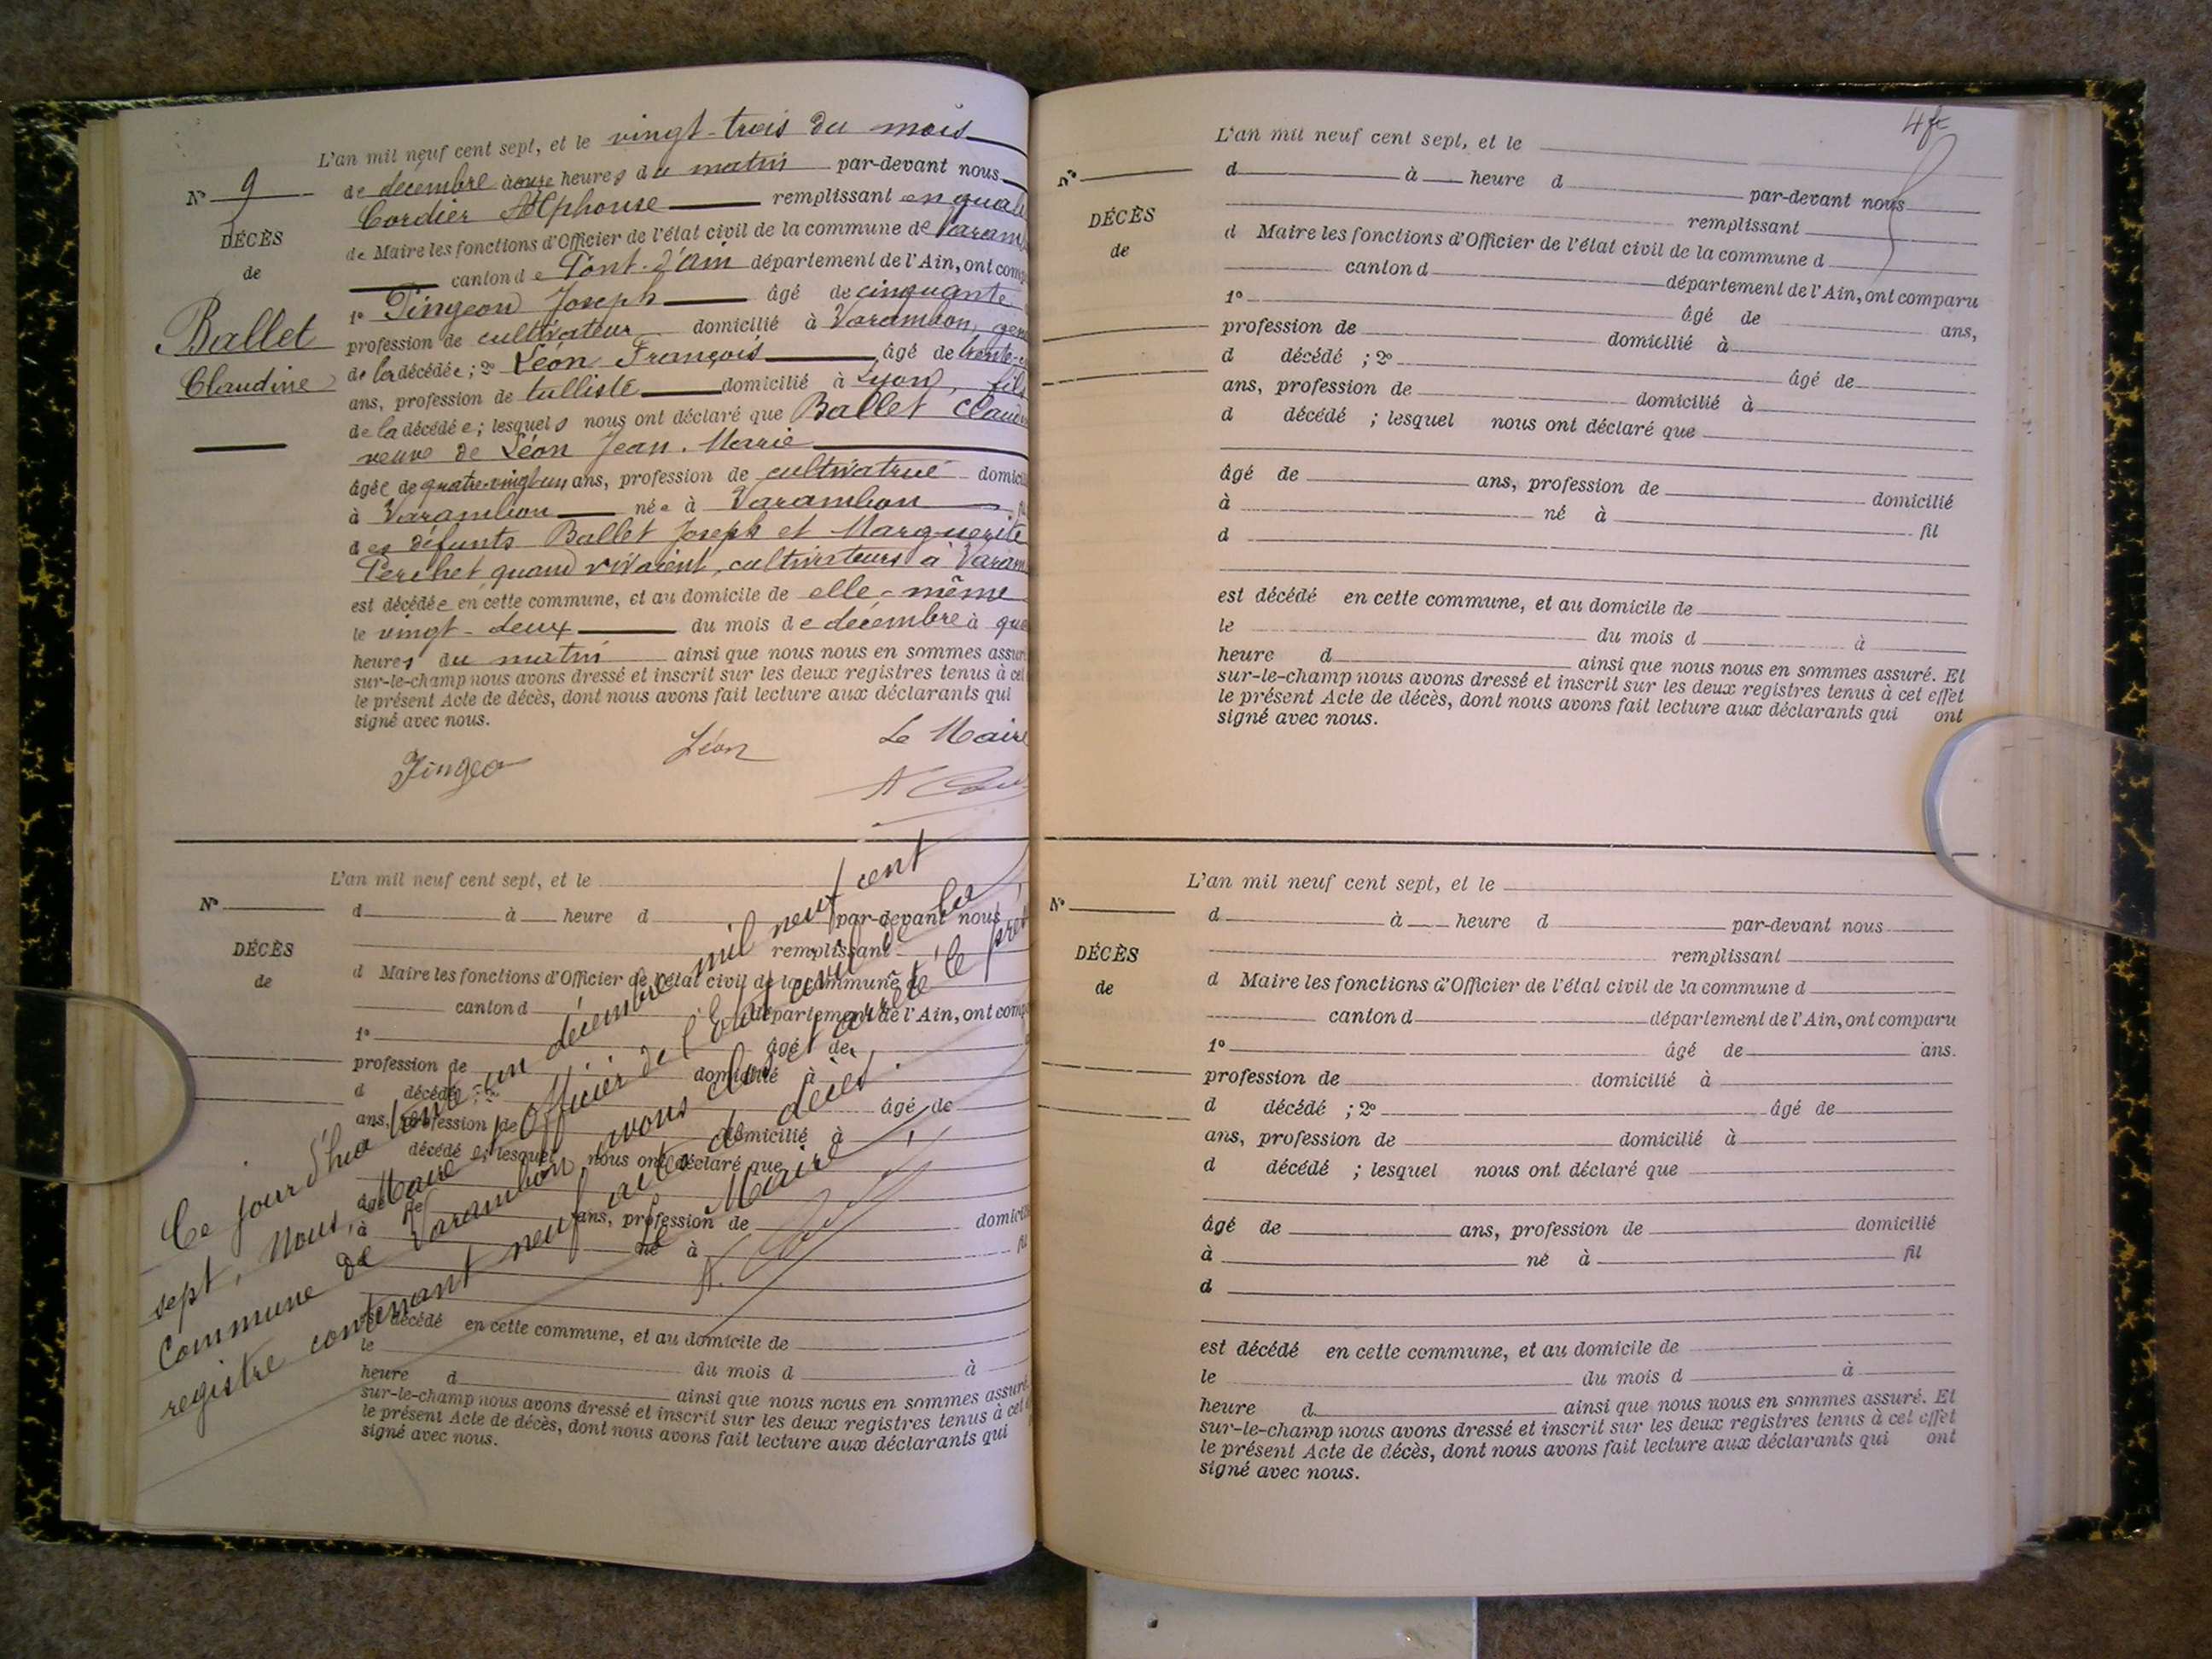 L'an mil neuf cent sept, et le vingt-trois du mois
N° 9
DÉCÈS
de
Ballet
Claudine
de décembre à onze heures du matin par-devant nous
Cordier Alphonse remplissant en quali
de Maire les fonctions d'Officier de l'état civil de la commune de Varam
canton de Pont-d'Ain département de l'Ain, ont comp
1° Pingeon Joseph âgé de cinquante
profession de cultivateur domicilié à Varambon, gen
de la décédée; 2° Léon François âgé de trente-
ans, profession de tulliste domicilié à Lyon, fils
de la décédée; lesquels nous ont déclaré que Ballet Claudin
veuve de Léon Jean-Marie
âgée de quatre-vingt-un ans, profession de cultivatrice domicili
à Varambon née à Varambon fil
des défunts Ballet Joseph et Marguerite
Perchet quand vivaient, cultivateurs à Varam
est décédée en cette commune, et au domicile de elle-même
le vingt-deux du mois de décembre à qua
heures du matin ainsi que nous nous en sommes assuré
sur-le-champ nous avons dressé et inscrit sur les deux registres tenus à cet
le présent Acte de décès, dont nous avons fait lecture aux déclarants qui
signé avec nous.
Pingeon Léon Le Maire
L'an mil neuf cent sept, et le
N°
DÉCÈS
de
d à heure d par-devant nous
remplissant
d Maire les fonctions d'Officier de l'état civil de la commune d
canton d département de l'Ain, ont comp
1° âgé de
profession de domicilié à
d décédé ; 2° âgé de
ans, profession de domicilié à
décédé ; lesquel nous ont déclaré que
âgé de ans, profession de domicili
à né à fil
est décédé en cette commune, et au domicile de
le du mois d à
heure d ainsi que nous nous en sommes assuré.
sur-le-champ nous avons dressé et inscrit sur les deux registres tenus à cet
le présent Acte de décès, dont nous avons fait lecture aux déclarants qui
signé avec nous.
Ce jourd'hui trente-un décembre mil neuf cent
sept, Nous, Maire, Officier de l'Etat civil de la
Commune de Varambon avons clos et arrêté le prés
registre contenant neuf actes de décès.
Le Maire
L'an mil neuf cent sept, et le
N°
DÉCÈS
de
d à heure d par-devant nous
remplissant
d Maire les fonctions d'Officier de l'état civil de la commune d
canton d département de l'Ain, ont comparu
1° âgé de ans,
profession de domicilié à
d décédé ; 2° âgé de
ans, profession de domicilié à
d décédé ; lesquel nous ont déclaré que
âgé de ans, profession de domicilié
à né à fil
d
est décédé en cette commune, et au domicile de
le du mois d à
heure d ainsi que nous nous en sommes assuré. Et
sur-le-champ nous avons dressé et inscrit sur les deux registres tenus à cet effet
le présent Acte de décès, dont nous avons fait lecture aux déclarants qui ont
signé avec nous.
L'an mil neuf cent sept, et le
N°
DÉCÈS
de
d à heure d par-devant nous
remplissant
d Maire les fonctions d'Officier de l'état civil de la commune d
canton d département de l'Ain, ont comparu
1° âgé de ans.
profession de domicilié à
d décédé ; 2° âgé de
ans, profession de domicilié à
d décédé ; lesquel nous ont déclaré que
âgé de ans, profession de domicilié
à né à fil
d
est décédé en cette commune, et au domicile de
le du mois d à
heure d ainsi que nous nous en sommes assuré. Et
sur-le-champ nous avons dressé et inscrit sur les deux registres tenus à cet effet
le présent Acte de décès, dont nous avons fait lecture aux déclarants qui ont
signé avec nous.